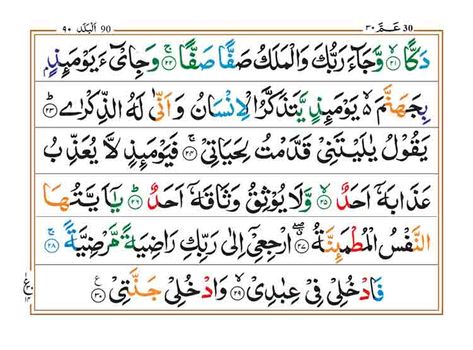 ٩٠ اَلْبَلَد 90 عَـمّ ٣٠ 30
دَكًّا ۙ﴿٢١﴾ وَّجَآءَ رَبُّكَ وَالْمَلَكُ صَفًّا صَفًّا ۚ﴿٢٢﴾ وَجِایْٓءَ یَوْمَىِٕذٍۭ
بِجَهَنَّمَ ۙ۬ یَوْمَىِٕذٍ یَّتَذَكَّرُ الْاِنْسَانُ وَ اَنّٰی لَهُ الذِّكْرٰی ؕ﴿٢٣﴾
یَقُوْلُ یٰلَیْتَنِیْ قَدَّمْتُ لِحَیَاتِیْ ۚ﴿٢٤﴾ فَیَوْمَىِٕذٍ لَّا یُعَذِّبُ
عَذَابَهٗۤ اَحَدٌ ۙ﴿٢٥﴾ وَّلَا یُوْثِقُ وَثَاقَهٗۤ اَحَدٌ ؕ﴿٢٦﴾ یٰۤاَیَّتُهَا
النَّفْسُ الْمُطْمَىِٕنَّةُ ۖ﴿٢٧﴾ ارْجِعِیْۤ اِلٰی رَبِّكِ رَاضِیَةً مَّرْضِیَّةً ۚ﴿٢٨﴾
فَادْخُلِیْ فِیْ عِبٰدِیْ ۙ﴿٢٩﴾ وَادْخُلِیْ جَنَّتِیْ ﴿٣٠﴾